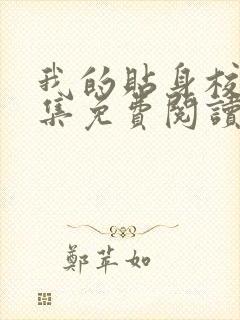 我的貼身校
集免費閱讀
鄭苹如